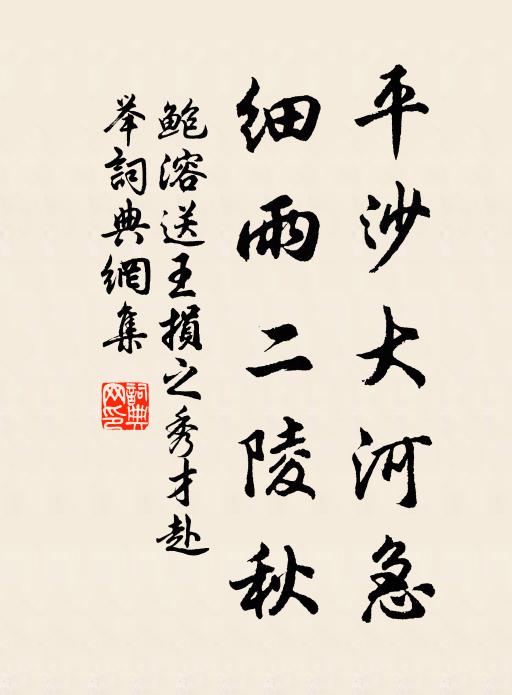 平沙大河急
细雨二陵秋
鲍溶送王損之秀才赴
举詞典網集
詞典网印